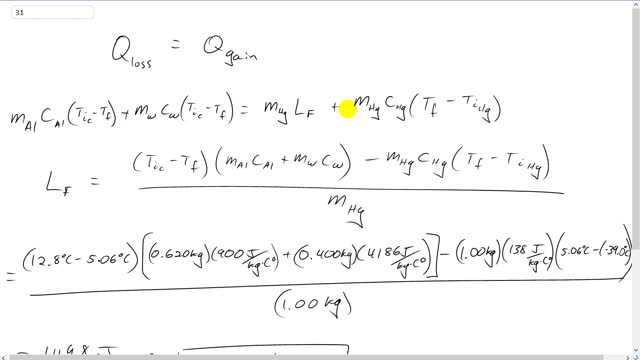 31
Q_loss = Q_gain
m_Al C_Al (T_ic - T_f) + m_w C_w (T_ic - T_f) = m_Hg L_F + m_Hg C_Hg (T_f - T_iHg)
L_F = ((T_ic - T_f)(m_Al C_Al + m_w C_w) - m_Hg C_Hg (T_f - T_iHg)) / m_Hg
= ((12.8°C - 5.06°C)[(0.620kg)(900 J/kg·C°) + (0.400kg)(4186 J/kg·C°)] - (1.00kg)(138 J/kg·C°)(5.06°C - (-39.0°C)) / (1.00 kg)